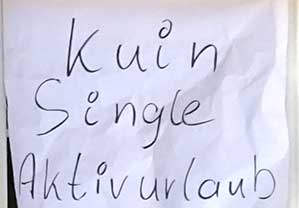 Kuin
Single
Aktivurlaub